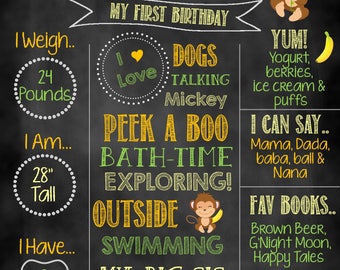 MY FIRST BIRTHDAY
I Weigh..
24
Pounds
I Am...
28"
Tall
I Have...
I
Love
DOGS
TALKING
Mickey
PEEK A BOO
BATH-TIME
EXPLORING!
OUTSIDE
SWIMMING
MY BIG SIS
YUM!
Yogurt,
berries,
ice cream &
puffs
I CAN SAY..
Mama, Dada,
baba, ball &
Nana
FAV BOOKS..
Brown Beer,
G'Night Moon,
Happy Tales